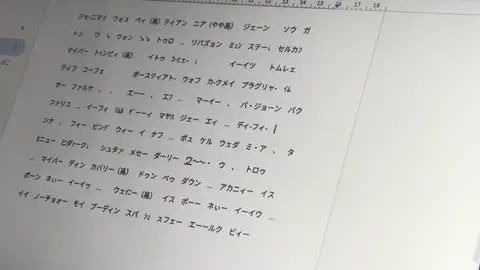 ジェ-ニマイ ウォㇲ ペィ(高) ティアン ニア(やや高) ジェーン ソウ ガ
トン ウゝ ウォン トゥロ … リバズョン ミョン ステー↓ セルカﾌ
マイパー トゥンピィ(高) イトゥ イーイツ トムレェ
ティフ コーフェ ポースティアト・ ウォフ カ-クメイ プラグリャ・ イム
サー ファルケ 、 、 エー- 、 エﾌ … マーイー 、 パ・ジョーン バク
ファリュ … イーフィ ゲーーイ マヤﾊ ジェー エィ … ディ・フィ・
ンナ 、 フィー ピンド ウィー イ ナフ … ポス ケル ウェダ ミ・ア 、 タ
ピタトーク↓ シュダァ メセー ダーリー ウ~~・ ウ 、 トロゥ
… マイパー ティン カバリー(高) ドゥン ベゥ ダウン … アカニィー イス
ボーン ネぃー イーイゥ … ウェイニー(高) イス ボーー ネぃー イーイウ …
イイ ノーチォォー モイ プーディン スパ スフェー エーールク ビィー